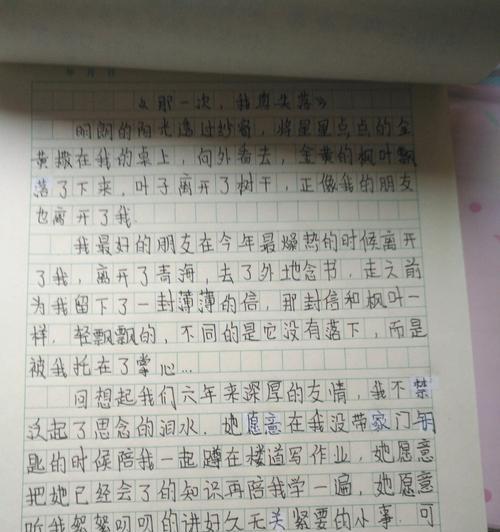 年 月 日
《那一次，我真失落》
明朗的阳光透过纱窗，将星星点点的金
黄撒在我的桌上，向外看去，金黄的枫叶飘
落了下来，叶子离开了树干，正像我的朋友
也离开了我.
我最好的朋友在今年最燥热的时候离开
了我，离开了青海，去了外地念书，走之前
为我留下了一封薄薄的信，那封信和枫叶一
样，轻飘飘的，不同的是它没有落下，而是
被我托在了掌心…
回想起我们六年来深厚的友情，我不禁
泛起了思念的泪水.她愿意在我没带家门钥
匙的时候陪我一起蹲在楼道写作业，她愿意
把她已经会了的知识再陪我学一遍，她愿意
听我絮絮叨叨的讲好久无关紧要的小事.可